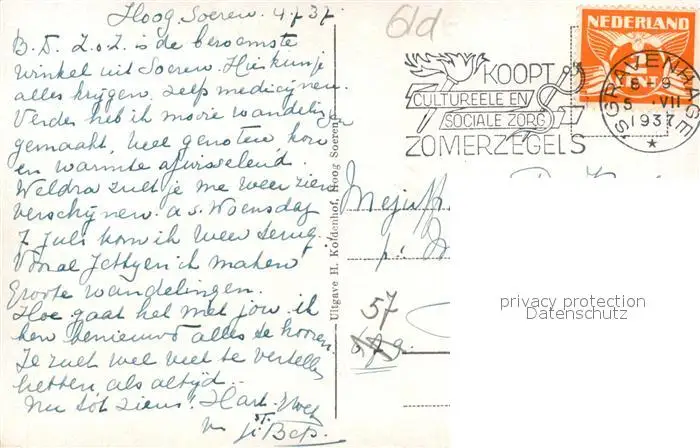 Hoog. Soeren. 4.7.37.
B. D. Z.o.Z. is de beroemste
winkel uit Soeren. Hier kun je
alles krijgen, zelfs medicijnen.
Verder heb ik mooie wandeling
gemaakt, veel genoten, kou
en warmte afwisselend.
Weldra zult je me weer zien
verschijnen. a.s. Woensdag
7 Juli kom ik weer terug.
Vooral Jetty en ik maken
groote wandelingen.
Hoe gaat het met jou. ik
ben benieuwd alles te hooren.
Je zult wel veel te vertellen
hebben als altijd.
Nu tot ziens! Hart.
v.
Bep.
Uitgave H. Koldenhof, Hoog Soeren
61d
KOOPT
CULTUREELE EN
SOCIALE ZORG
ZOMERZEGELS
NEDERLAND
'S GRAVENHAGE
8-9
5 VII
1937
Mejuff.
57
privacy protection
Datenschutz